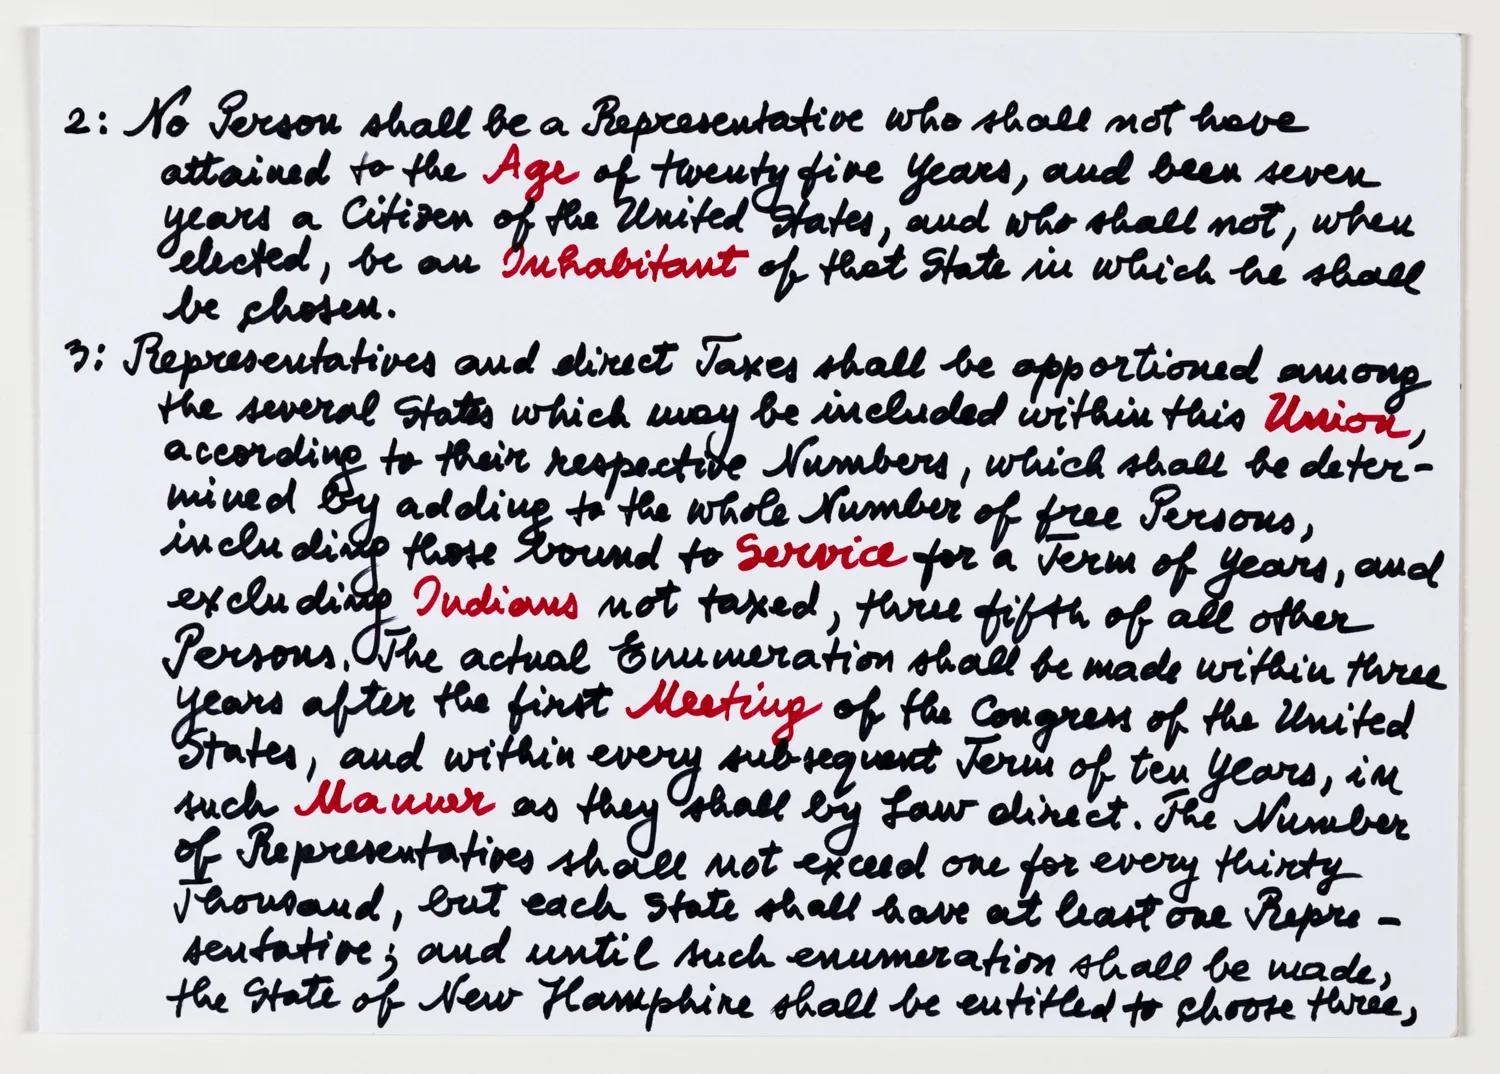 2: No Person shall be a Representative who shall not have
attained to the Age of twenty five Years, and been seven
years a Citizen of the United States, and who shall not, when
elected, be an Inhabitant of that State in which he shall
be chosen.
3: Representatives and direct Taxes shall be apportioned among
the several States which may be included within this Union,
according to their respective Numbers, which shall be deter-
mined by adding to the whole Number of free Persons,
including those bound to Service for a Term of Years, and
excluding Indians not taxed, three fifth of all other
Persons. The actual Enumeration shall be made within three
Years after the first Meeting of the Congress of the United
States, and within every subsequent Term of ten Years, in
such Manner as they shall by Law direct. The Number
of Representatives shall not exceed one for every thirty
Thousand, but each State shall have at least one Repre-
sentative; and until such enumeration shall be made,
the State of New Hampshire shall be entitled to choose three,